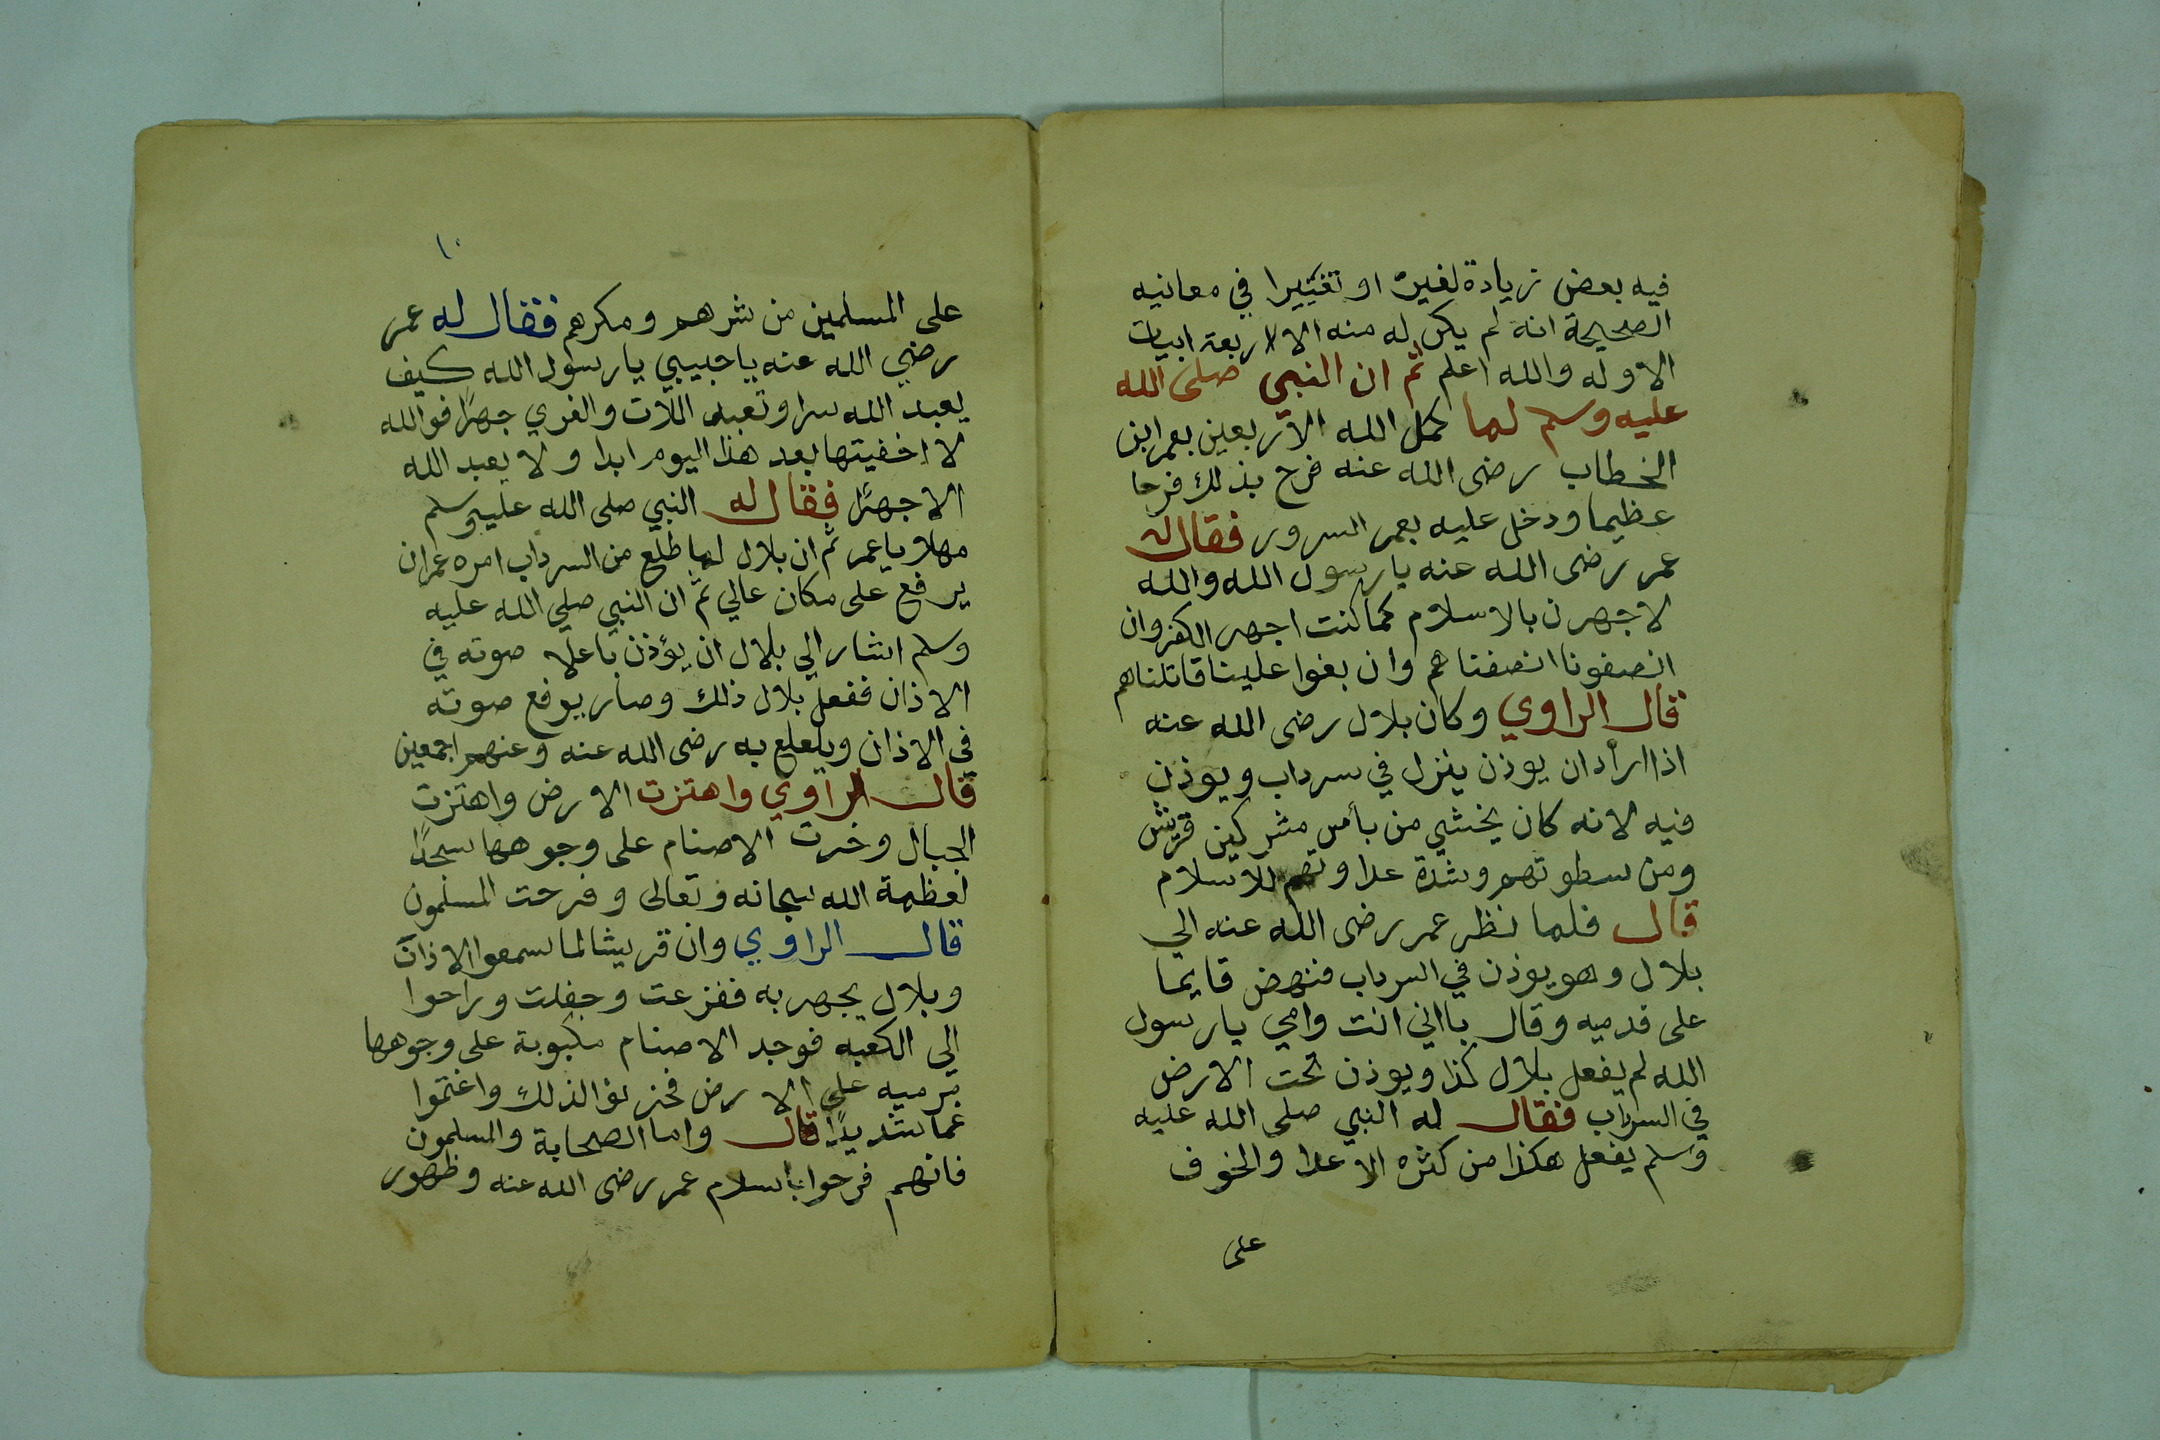 فيه بعض زيادة لغيره او تغييرا في معانيه
الصحيحة انه لم يكن له منه الا اربعة ابيات
الاوله والله اعلم ثم ان النبي صلى الله
عليه وسلم لما كمل الله الاربعين بعمر ابن
الخطاب رضى الله عنه فرح بذلك فرحا
عظيما ودخل عليه بعمر السرور فقال له
عمر رضى الله عنه يا رسول الله والله
لاجهرن بالاسلام كما كنت اجهر الكفر وان
انصفونا انصفناهم وان بغوا علينا قاتلناهم
قال الراوي وكان بلال رضى الله عنه
اذا اراد ان يوذن ينزل في سرداب ويوذن
فيه لانه كان يخشي من بأس مشركين قريش
ومن سطوتهم وشدة عداوتهم للاسلام
قال فلما نظر عمر رضى الله عنه الي
بلال وهو يوذن في السرداب فنهض قايما
على قدميه وقال بااني انت وامي يا رسول
الله لم يفعل بلال كذا ويوذن تحت الارض
في السرداب فقال له النبي صلى الله عليه
وسلم يفعل هكذا من كثره الاعدا والخوف
على
١٠
على المسلمين من شرهم ومكرهم فقال له عمر
رضي الله عنه يا حبيبي يا رسول الله كيف
يعبد الله سرا وتعبد اللات والغري جهرًا فوالله
لا اخفيتها بعد هذا اليوم ابدا ولا يعبد الله
الا جهرًا فقال له النبي صلى الله عليه وسلم
مهلا يا عمر ثم ان بلال لما طلع من السرداب امره عمر ان
يرفع على مكان عالي ثم ان النبي صلي الله عليه
وسلم اشار الي بلال ان يؤذن باعلا صوته في
الاذان ففعل بلال ذلك وصار يوفع صوته
في الاذان ويلعلع به رضى الله عنه وعنهم اجمعين
قال الراوي واهتزت الارض واهتزت
الجبال وخرت الاصنام على وجوهها سجدًا
لعظمة الله سبحانه وتعالى وفرحت المسلمون
قال الراوي وان قريشا لما سمعوا الاذان
وبلال يجهر به ففزعت وجفلت وراحوا
الي الكعبه فوجد الاصنام مكبوبة على وجوهها
مرميه على الارض فحزنوا لذلك واغتموا
غما شديدًا قال واما الصحابة والمسلمون
فانهم فرحوا باسلام عمر رضى الله عنه وظهور